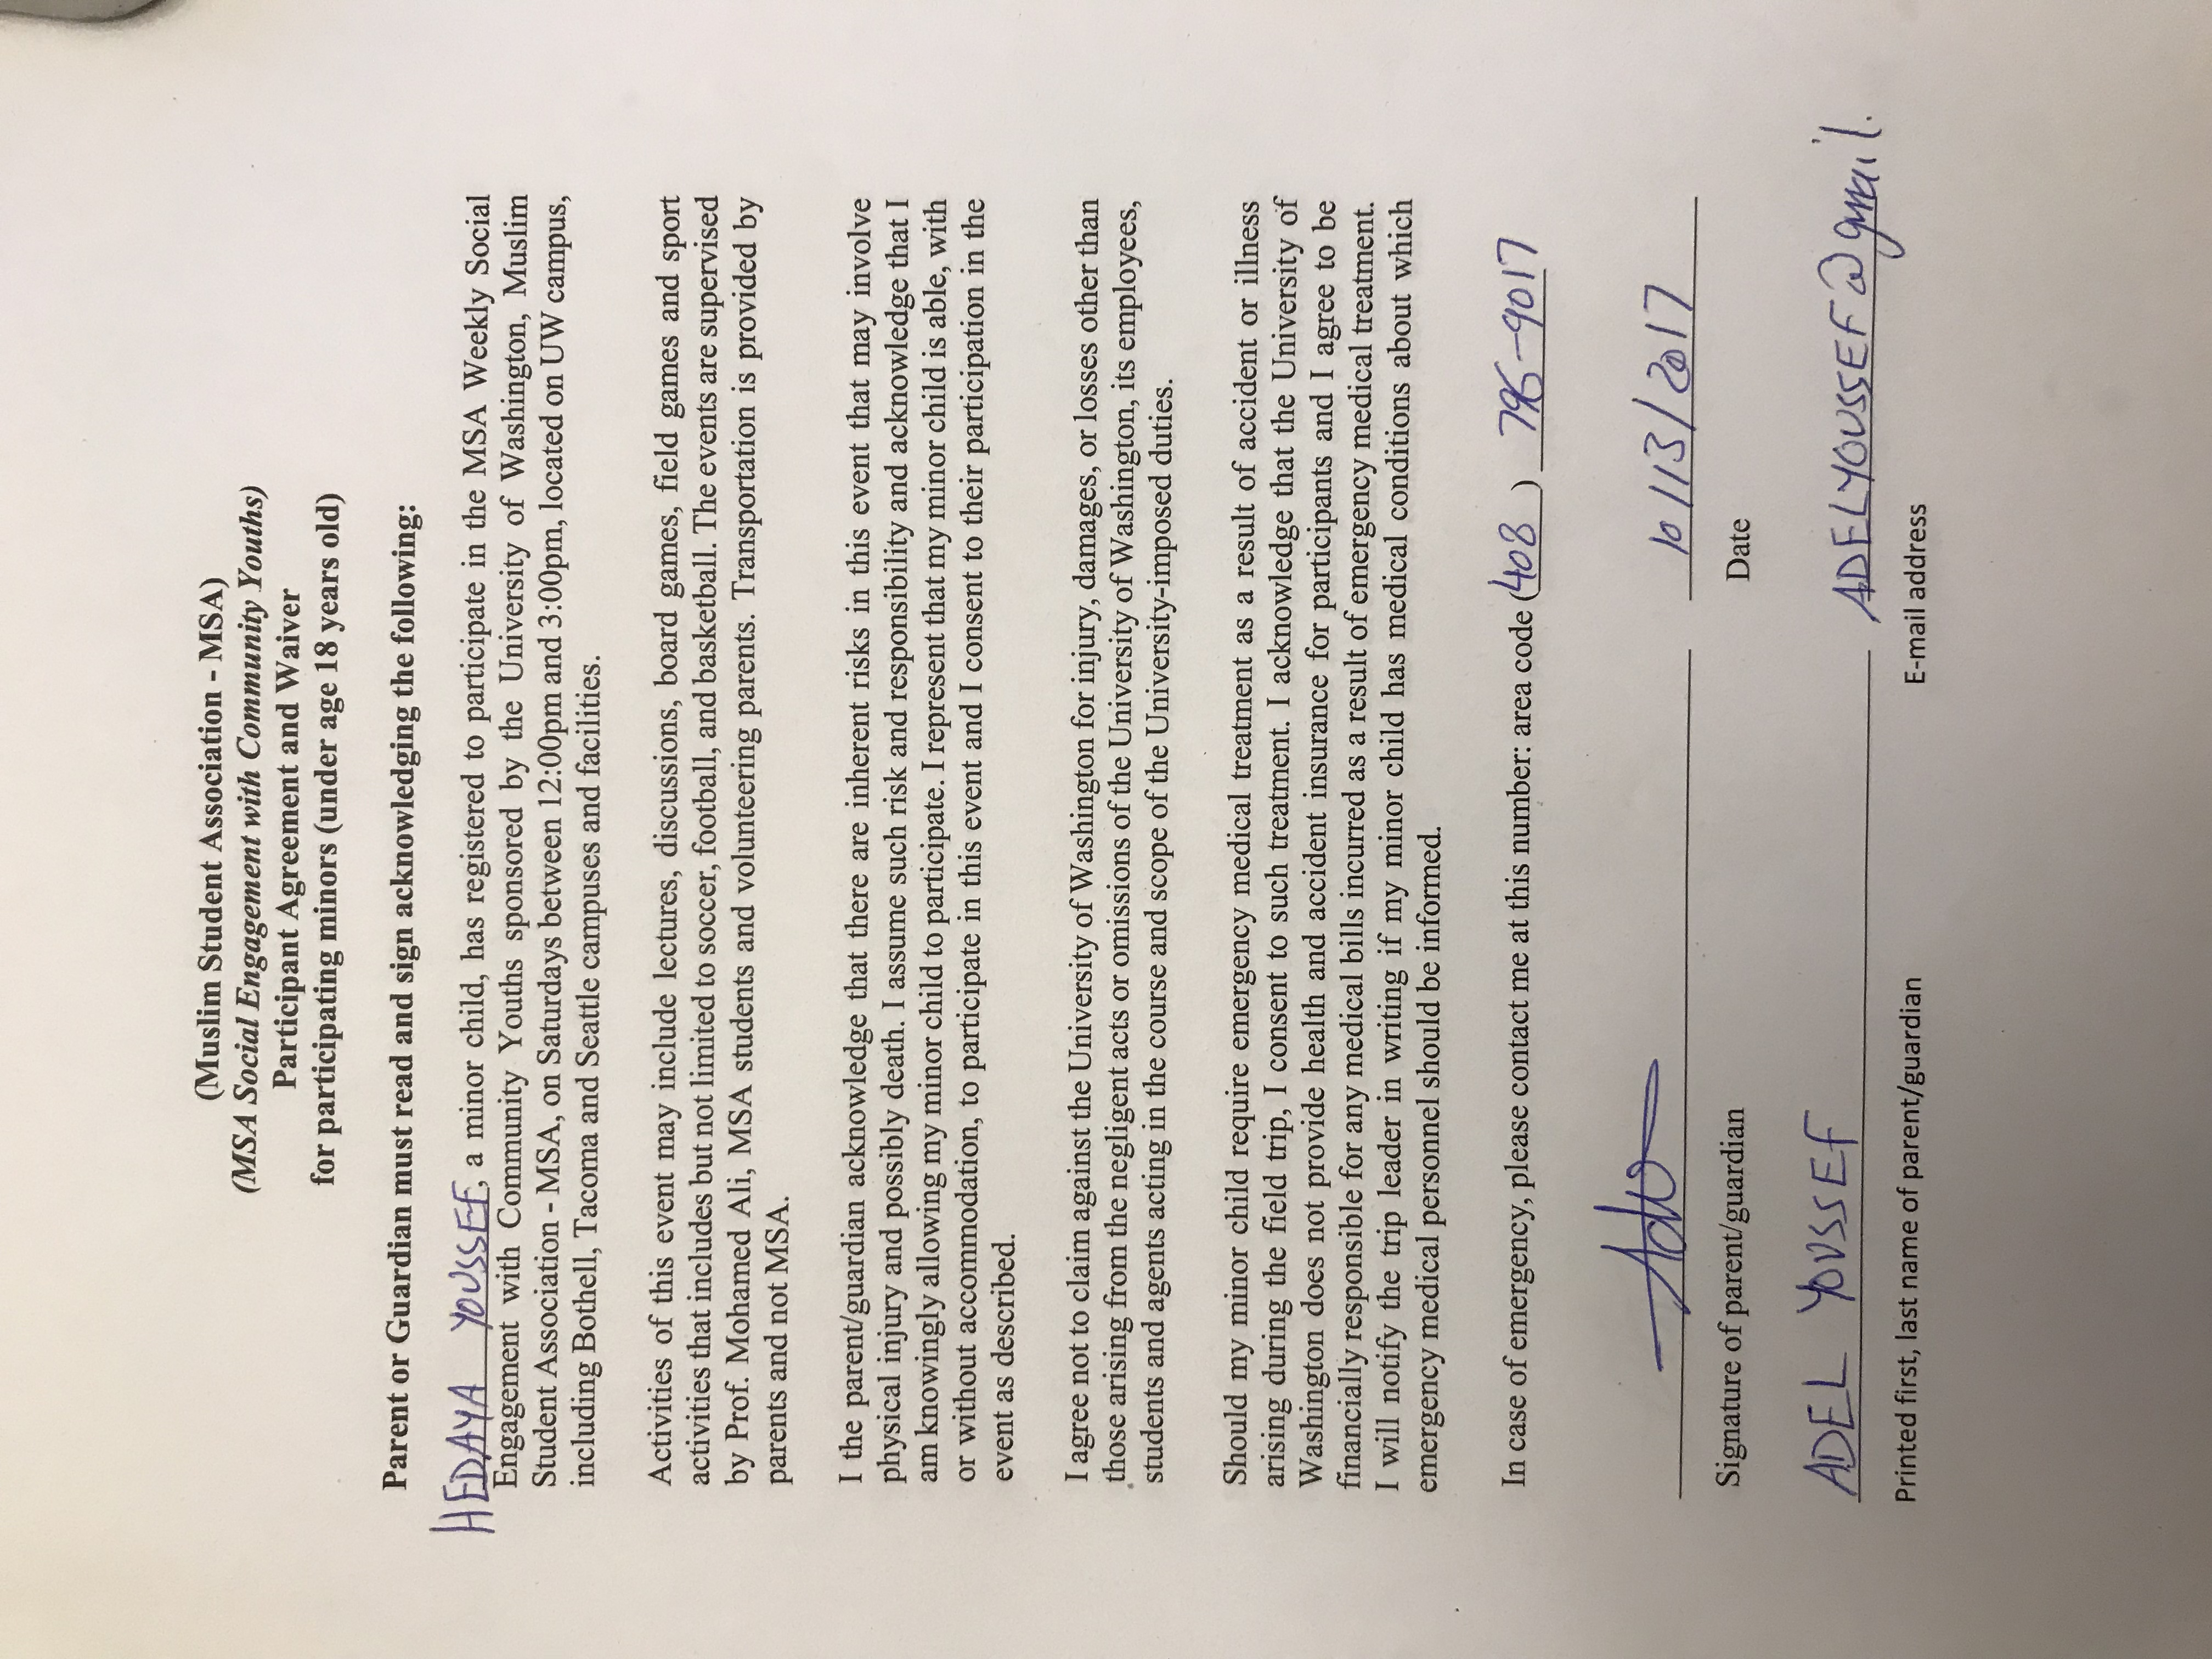 (Muslim Student Association - MSA)
(MSA Social Engagement with Community Youths)
Participant Agreement and Waiver
for participating minors (under age 18 years old)
Parent or Guardian must read and sign acknowledging the following:
HEDAYA YOUSSEF, a minor child, has registered to participate in the MSA Weekly Social
Engagement with Community Youths sponsored by the University of Washington, Muslim
Student Association - MSA, on Saturdays between 12:00pm and 3:00pm, located on UW campus,
including Bothell, Tacoma and Seattle campuses and facilities.
Activities of this event may include lectures, discussions, board games, field games and sport
activities that includes but not limited to soccer, football, and basketball. The events are supervised
by Prof. Mohamed Ali, MSA students and volunteering parents. Transportation is provided by
parents and not MSA.
I the parent/guardian acknowledge that there are inherent risks in this event that may involve
physical injury and possibly death. I assume such risk and responsibility and acknowledge that I
am knowingly allowing my minor child to participate. I represent that my minor child is able, with
or without accommodation, to participate in this event and I consent to their participation in the
event as described.
I agree not to claim against the University of Washington for injury, damages, or losses other than
those arising from the negligent acts or omissions of the University of Washington, its employees,
students and agents acting in the course and scope of the University-imposed duties.
Should my minor child require emergency medical treatment as a result of accident or illness
arising during the field trip, I consent to such treatment. I acknowledge that the University of
Washington does not provide health and accident insurance for participants and I agree to be
financially responsible for any medical bills incurred as a result of emergency medical treatment.
I will notify the trip leader in writing if my minor child has medical conditions about which
emergency medical personnel should be informed.
In case of emergency, please contact me at this number: area code (408) 796-9017
10/13/2017
Signature of parent/guardian Date
ADEL YOUSSEF ADELYOUSSEF@gmail.
Printed first, last name of parent/guardian E-mail address